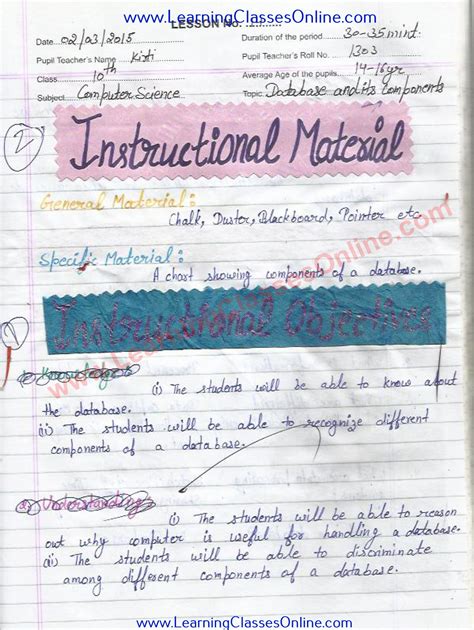 www.LearningClassesOnline.com
LESSON NO.
Date 02/03/2015 Duration of the period 30-35mint.
Pupil Teacher's Name Kirti Pupil Teacher's Roll No. 1303
Class 10th Average Age of the pupils 14-16yr
Subject Computer Science Topic Database and its Components
2
Instructional Material
General Material:
Chalk, Duster, Blackboard, Pointer etc
Specific Material:
A chart showing components of a database.
1
Instructional Objectives
Knowledge:
(i) The students will be able to know about
the database.
(ii) The students will be able to recognize different
components of a database.
2) Understanding:
(i) The students will be able to reason
out why computer is useful for handling a database.
(ii) The students will be able to discriminate
among different components of a database.
www.LearningClassesOnline.com
www.LearningClassesOnline.com